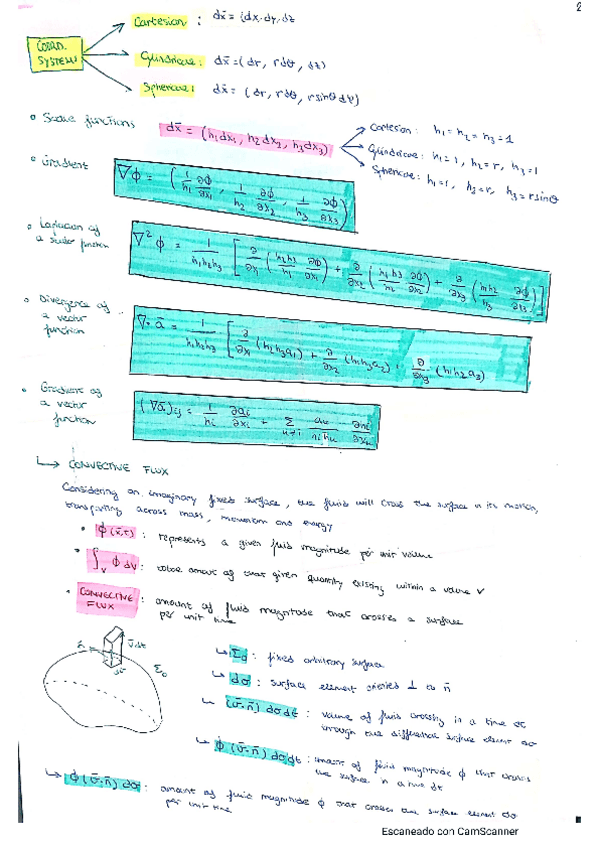 2
COORD. SYSTEMS
Cartesian : dx̄ = (dx, dy, dz
Cylindrical : dx̄ = (dr, rdθ, dz)
Spherical : dx̄ = (dr, rdθ, rsinθ dψ)
• Scale functions dx̄ = (h₁dx₁, h₂dx₂, h₃dx₃)
Cartesian : h₁ = h₂ = h₃ = 1
Cylindrical : h₁ = 1, h₂ = r, h₃ = 1
Spherical : h₁ = 1, h₂ = r, h₃ = rsinθ
• Gradient ∇ϕ = (1/h₁ ∂ϕ/∂x₁, 1/h₂ ∂ϕ/∂x₂, 1/h₃ ∂ϕ/∂x₃)
• Laplacian of a scalar function ∇²ϕ = 1/h₁h₂h₃ [∂/∂x₁ (h₂h₃/h₁ ∂ϕ/∂x₁) + ∂/∂x₂ (h₁h₃/h₂ ∂ϕ/∂x₂) + ∂/∂x₃ (h₁h₂/h₃ ∂ϕ/∂x₃)]
• Divergence of a vector function ∇·ā = 1/h₁h₂h₃ [∂/∂x₁ (h₂h₃a₁) + ∂/∂x₂ (h₁h₃a₂) + ∂/∂x₃ (h₁h₂a₃)
• Gradient of a vector function (∇ā)ij = 1/hi ∂ai/∂xi + Σ
↳ CONVECTIVE FLUX
Considering an imaginary fixed surface, the fluid will cross the surface in its motion,
transporting across mass, momentum and energy
• ϕ(x̄,t) : represents a given fluid magnitude per unit volume
• ∫v ϕ dV : total amount of that given quantity existing within a volume V
• CONVECTIVE FLUX : amount of fluid magnitude that crosses a surface
per unit time
n̄ v̄ dt Σ₀
↳ Σ₀ : fixed arbitrary surface
↳ dσ : surface element oriented ⊥ to n̄
↳ (v̄·n̄) dσdt : volume of fluid crossing in a time dt
through the differential surface element dσ
↳ ϕ (v̄·n̄) dσdt : amount of fluid magnitude ϕ that crosses
the surface in a time dt
↳ ϕ(v̄·n̄) dσ : amount of fluid magnitude ϕ that crosses the surface element dσ
per unit time
Escaneado con CamScanner